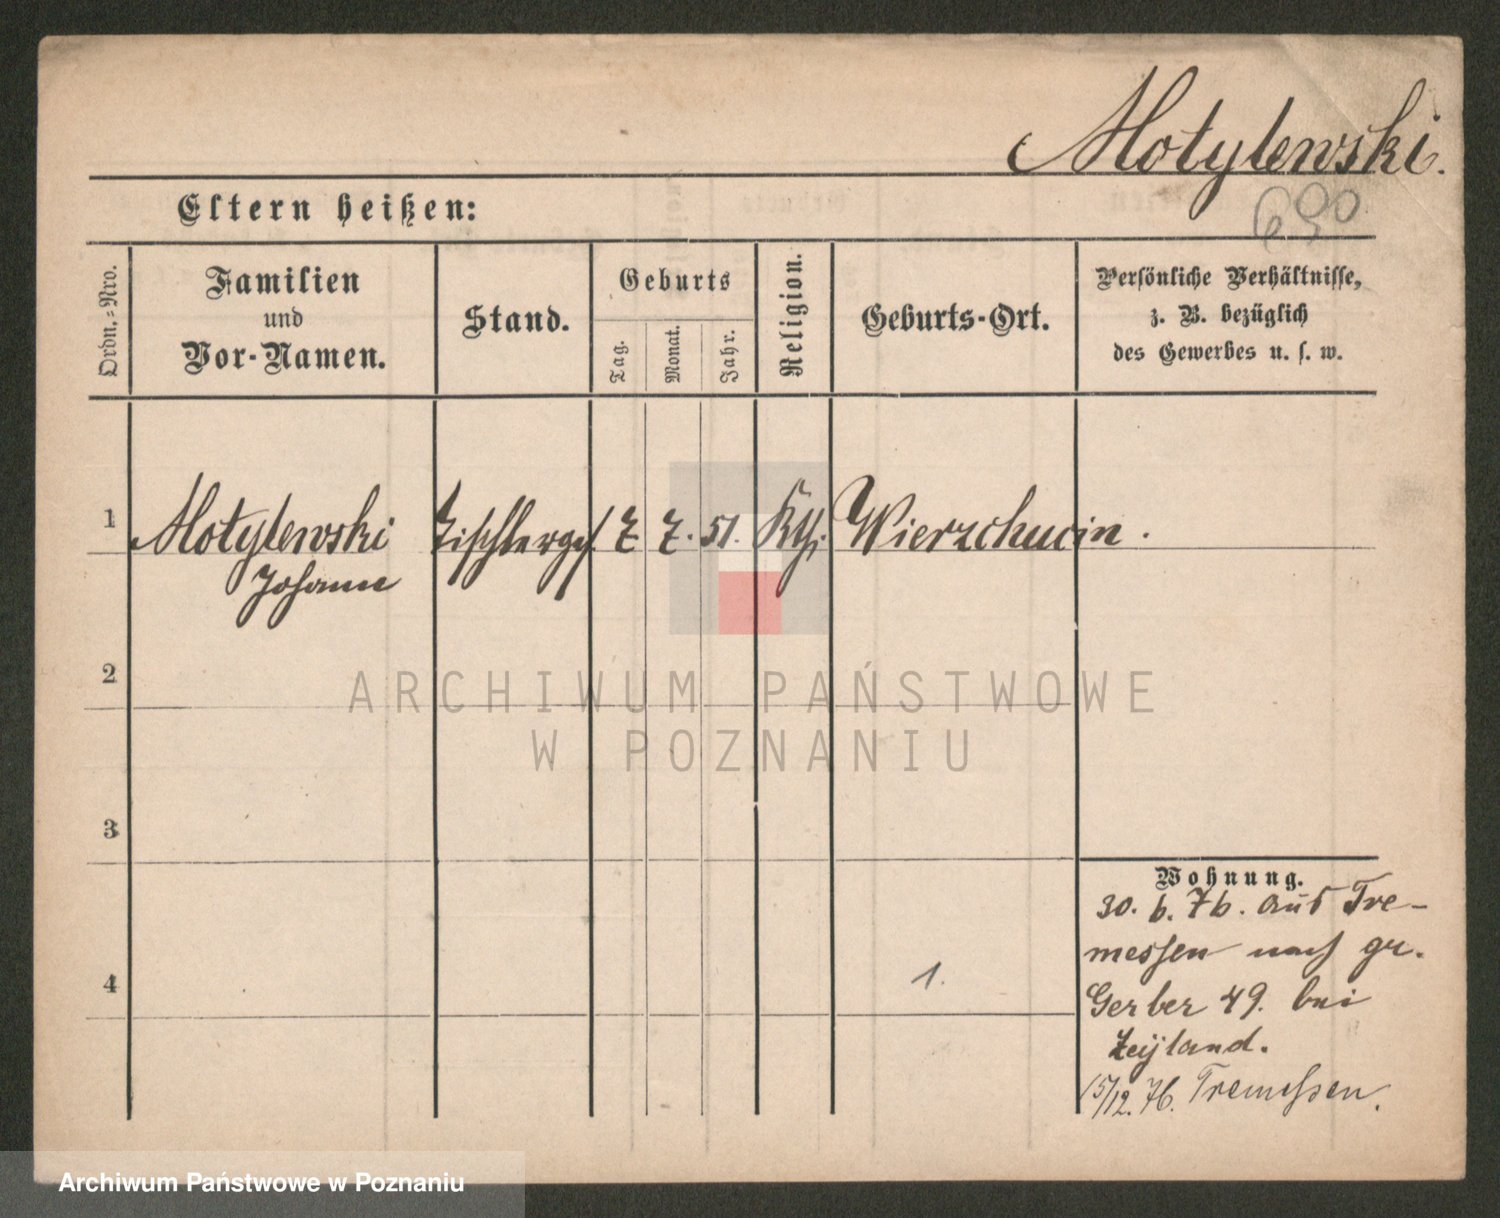 Motylewski.
690
Eltern heißen:
Ordn.-Nro.
Familien
und
Vor-Namen.
Stand.
Geburts
Tag.
Monat.
Jahr.
Religion.
Geburts-Ort.
Persönliche Verhältnisse,
z. B. bezüglich
des Gewerbes u. s. w.
1
Motylewski
Johann
Tischlerges.
7. 7. 51.
Kth.
Wierzchucin.
2
ARCHIWUM PAŃSTWOWE
W POZNANIU
3
Wohnung.
30. 6. 76. aus Tre-
messen nach gr.
4
1.
Gerber 49. bei
Zeyland.
15/12. 76. Tremessen.
Archiwum Państwowe w Poznaniu